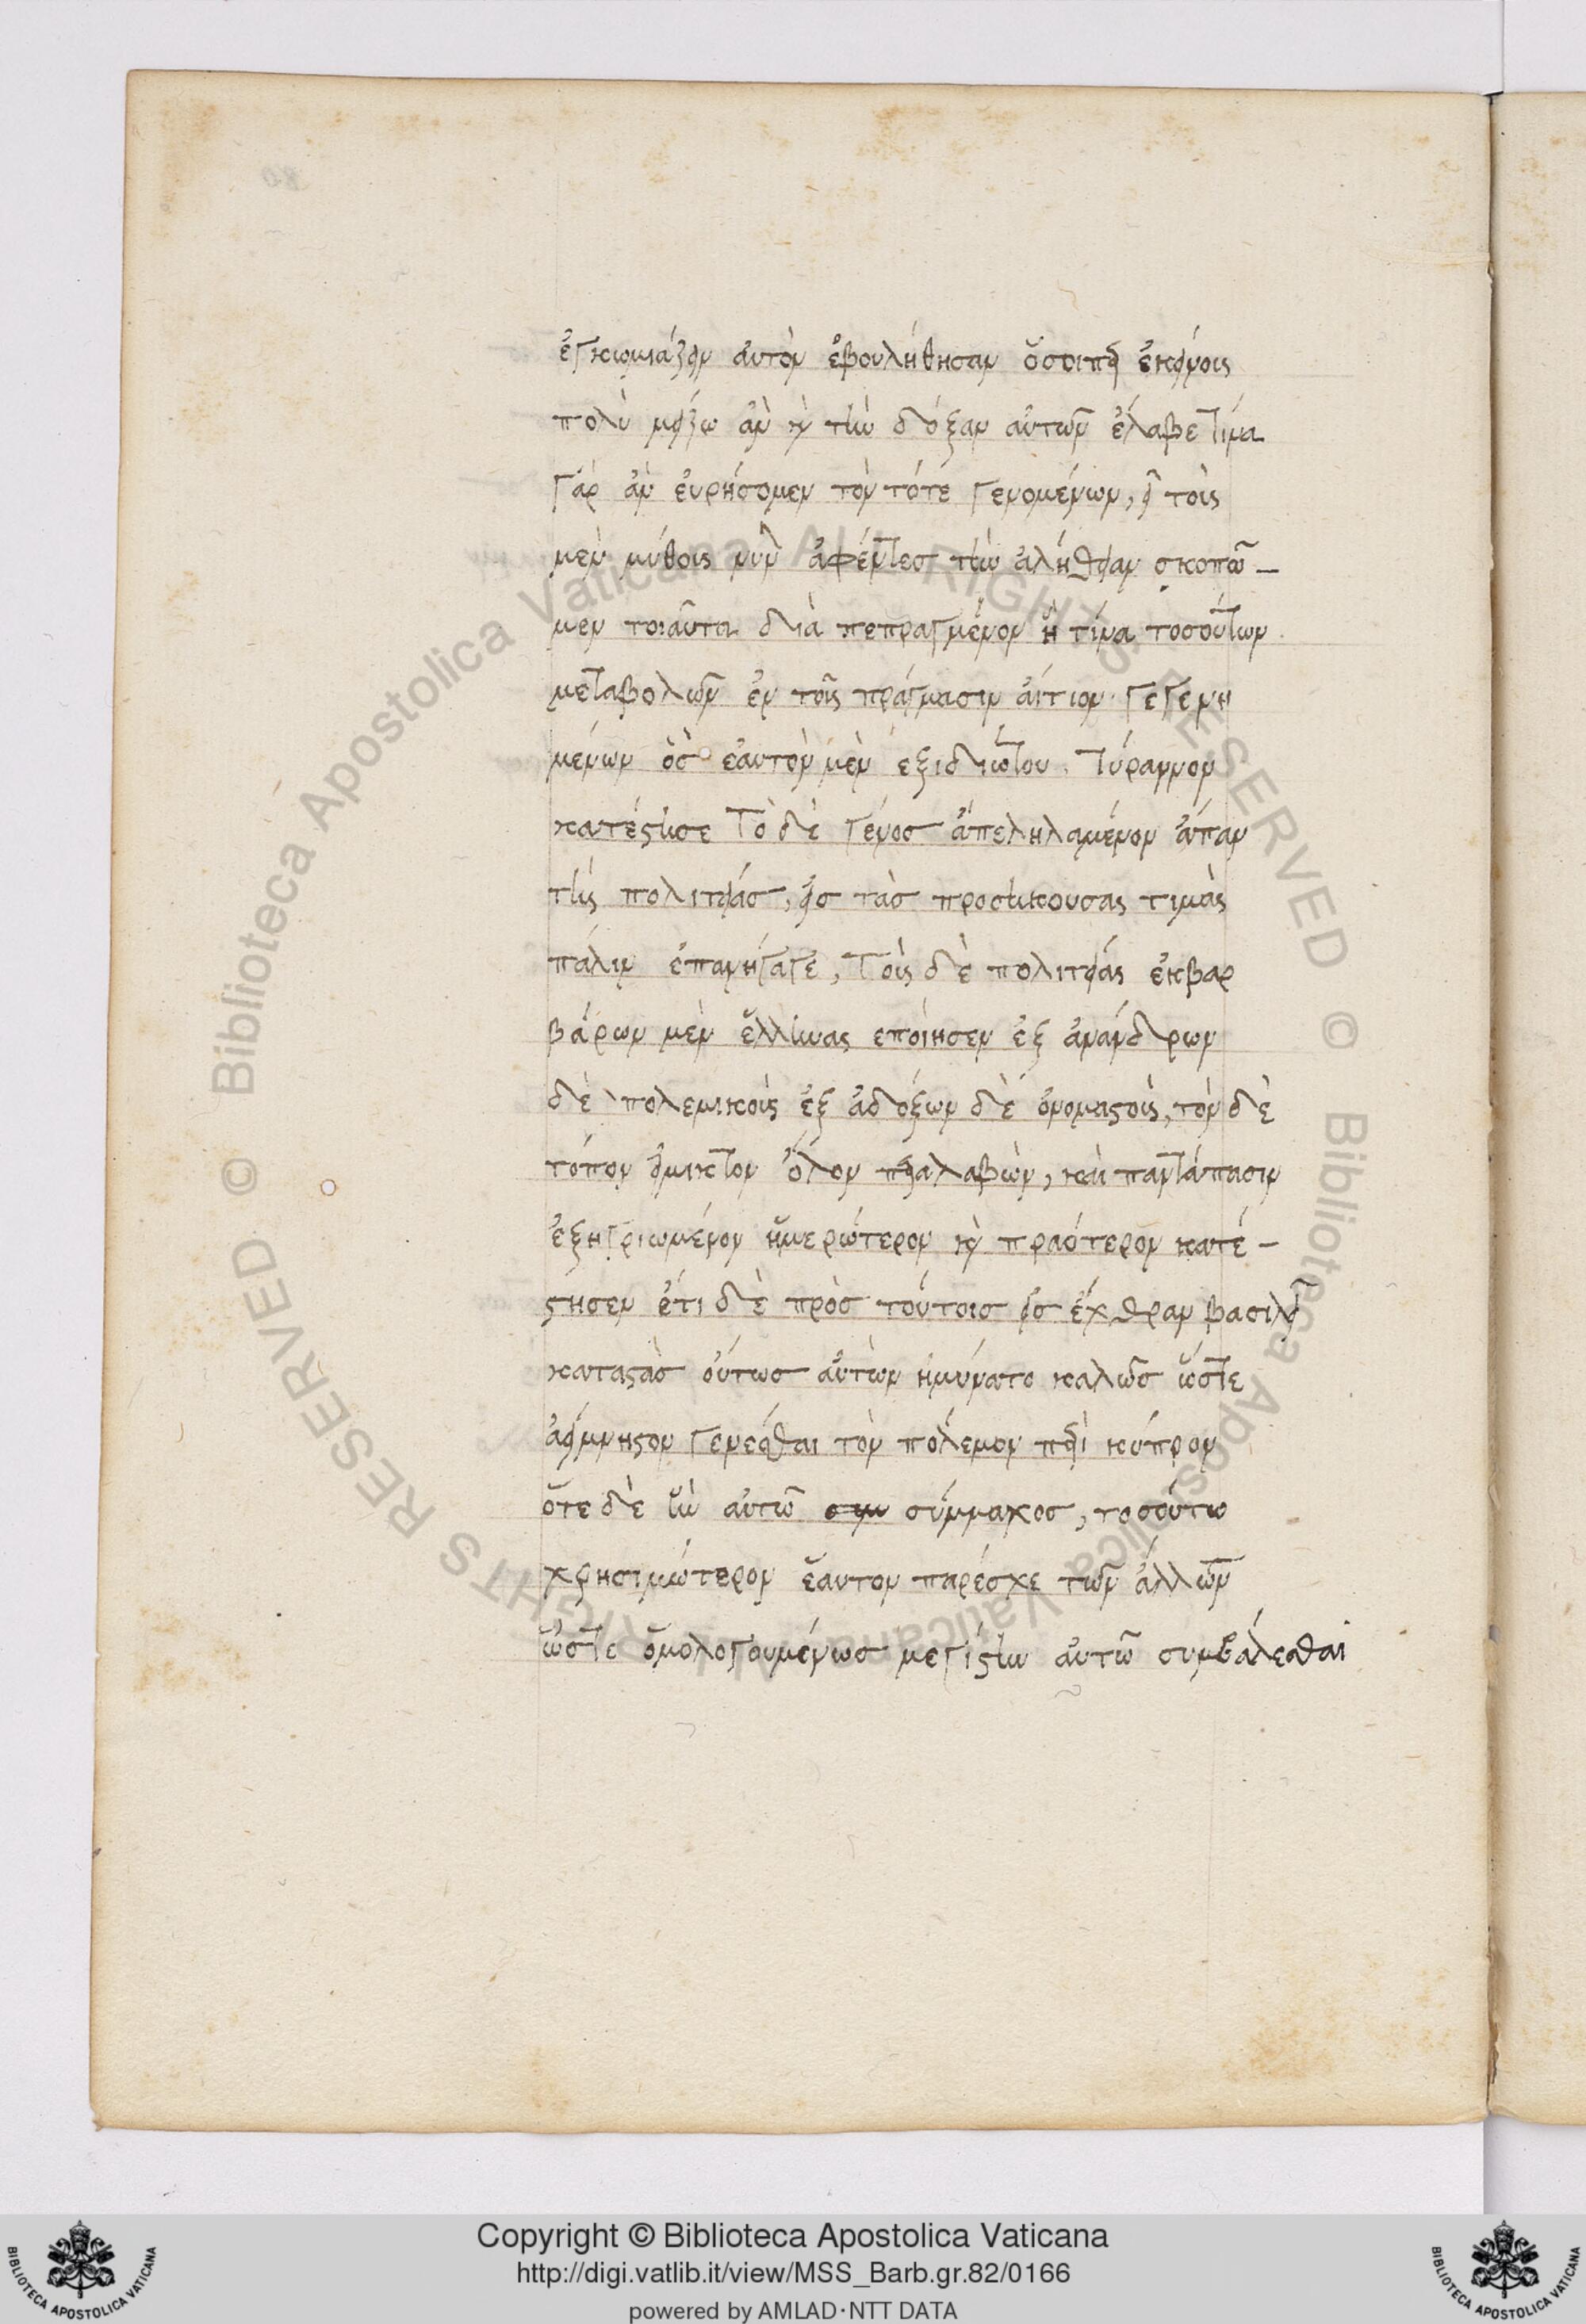 ἐγκωμιάζειν ἀυτὸν ἐβουλήθησαν ὅσοιπερ ἐκείνοις
πολὺ μείζω ἂν καὶ τὴν δόξαν αὐτῶν ἔλαβε τίνα
γὰρ ἂν ἑυρήσομεν τὸν τότε γενομένων, εἰ τοὺς
μὲν μύθοις νῦν ἀφέντεσ τὴν ἀλήθειαν σκοπῶ–
μεν τοιαῦτα διὰ πεπραγμένον ἢ τίνα τοσούτων
μεταβολῶν ἐν τοῖς πράγμασιν ἀίτιον γεγενη
μένων ὃσ ἑαυτὸν μὲν ἐξιδιώτου τύραννον
κατέστησε τὸ δὲ γένοσ ἀπεληλαμένον ἅπαν
τῆς πολιτείασ, εἰσ τὰσ προσηκουσας τιμὰς
πάλιν ἐπανήγαγε, τοὺς δὲ πολιτείας ἐκβαρ
βάρων μὲν ἕλληνας εποίησεν ἐξ ἀνάνδρων
δὲ πολεμικοὺς ἐξ ἀδόξων δὲ ὀνομαστοὺς, τὸν δὲ
τόπον ἄμικτον ὅλον παραλαβὼν, καὶ παντάπασιν
ἐξηγριωμένον ἡμερώτερον καὶ πραότερον κατέ–
στησεν ἔτι δὲ πρὸσ τούτοισ εἰσ ἔχθραν βασιλεῖ
καταστὰσ οὕτωσ αὐτὼν ἠμύνατο καλῶσ ὥστε
ἀείμνηστον γενέσθαι τὸν πόλεμον περὶ κύπρον
ὅτε δὲ ἦν αὐτῶ συμ σύμμαχοσ, τοσούτω
χρησιμώτερον ἑαυτον παρέσχε τῶν ἄλλων
ὥστε ὁμολογουμένωσ μεγίστην αὐτῶ συμβάλεσθαι
Copyright © Biblioteca Apostolica Vaticana
http://digi.vatlib.it/view/MSS_Barb.gr.82/0166
powered by AMLAD·NTT DATA